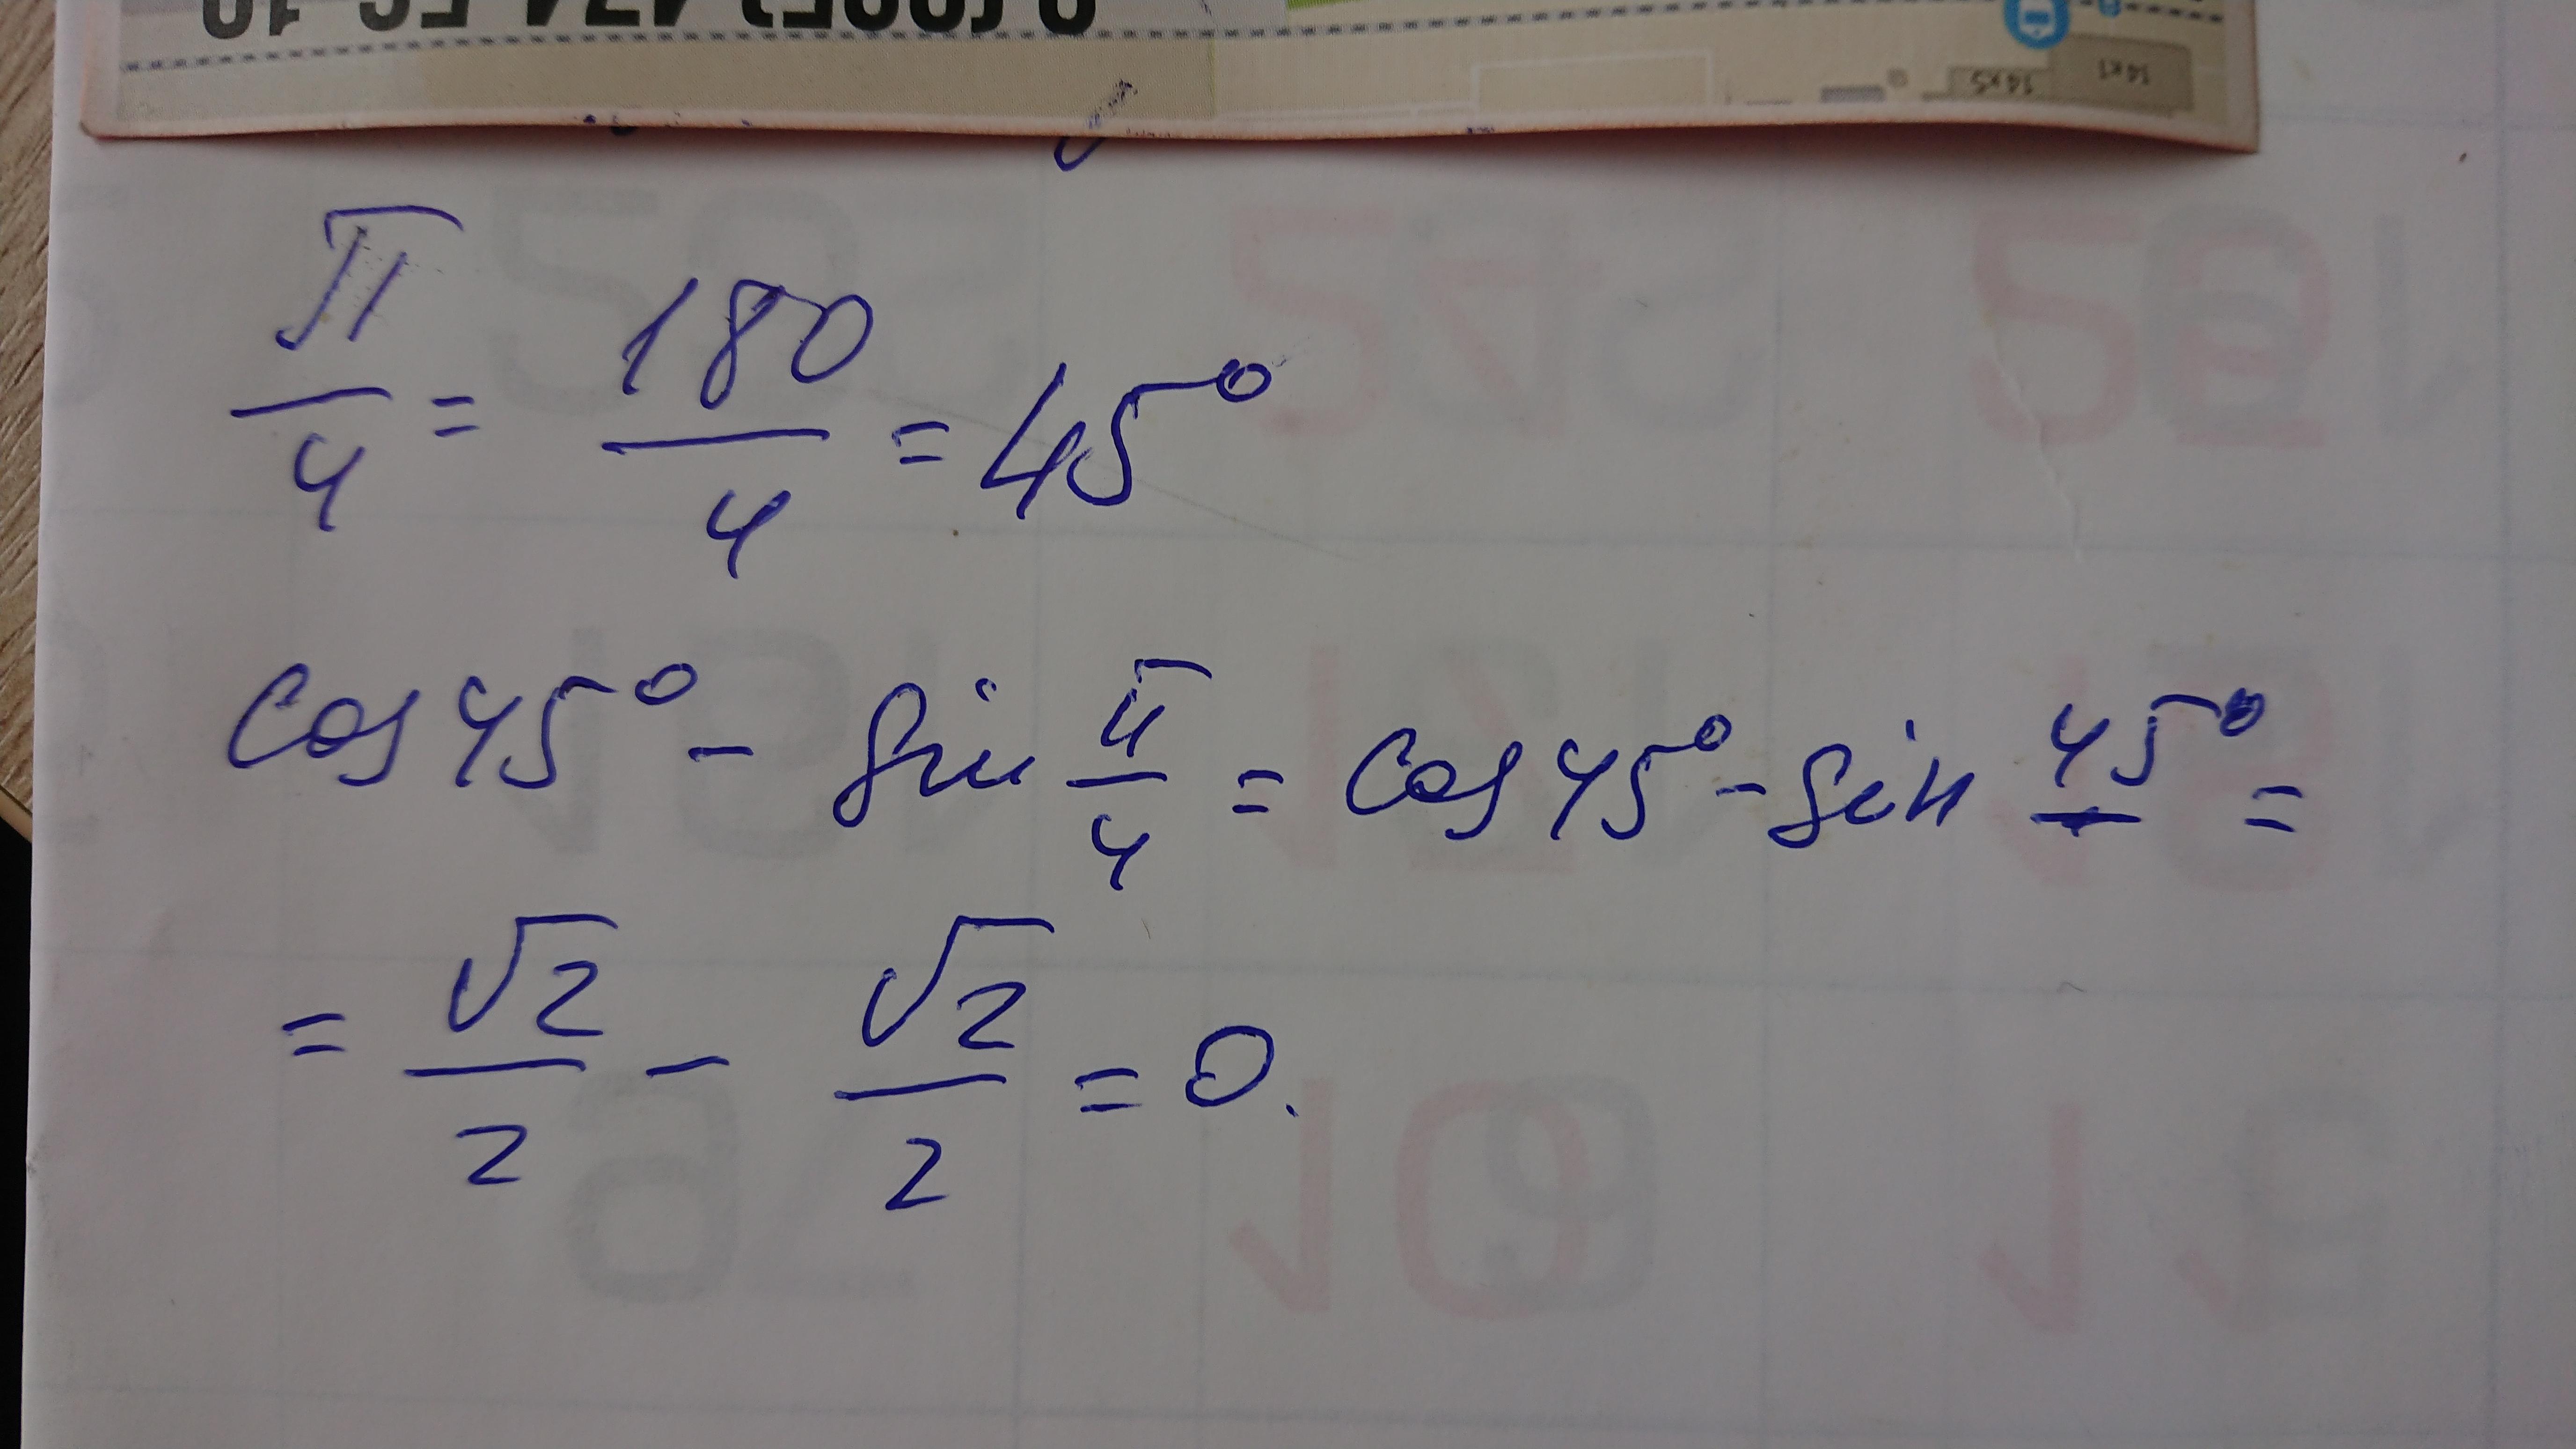 π/4 = 180/4 = 45°
cos 45° - sin π/4 = cos 45° - sin 45° =
= √2/2 - √2/2 = 0.
14x1
14x5